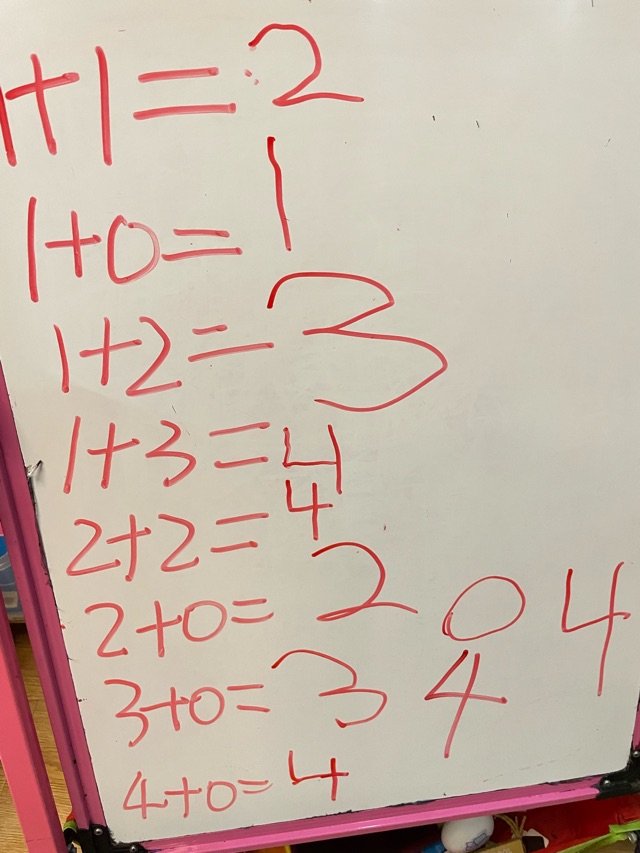 1+1=2
1+0=1
1+2=3
1+3=4
2+2=4
2+0=2 0 4
3+0=3 4
4+0=4